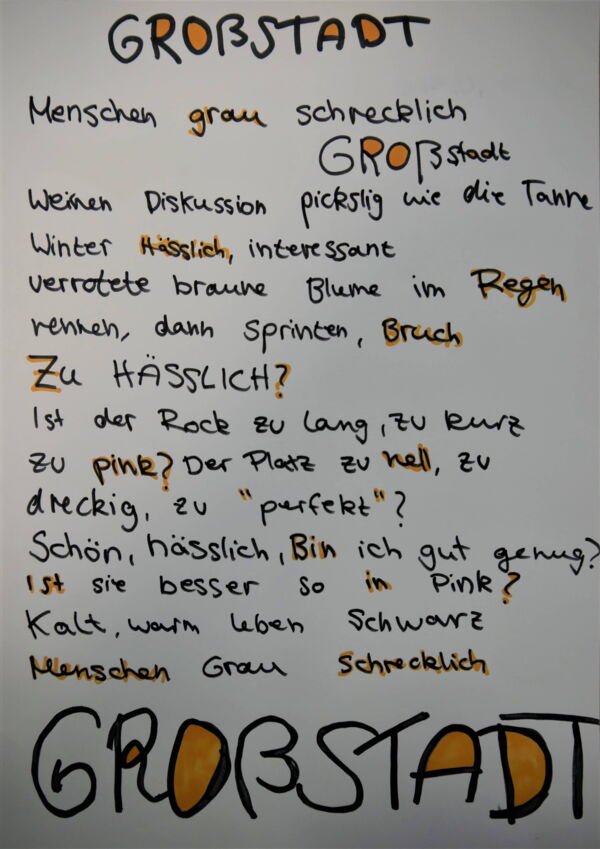 GROßSTADT
Menschen grau schrecklich
GROßstadt
Weinen Diskussion pickslig wie die Tanne
Winter Hässlich, interessant
verrotete braune Blume im Regen
rennen, dann Sprinten, Bruch
Zu HÄSSLICH?
Ist der Rock zu lang, zu kurz
zu pink? Der Platz zu hell, zu
dreckig, zu "perfekt"?
Schön, hässlich, Bin ich gut genug?
Ist sie besser so in Pink?
Kalt, warm leben Schwarz
Menschen Grau Schrecklich
GROßSTADT